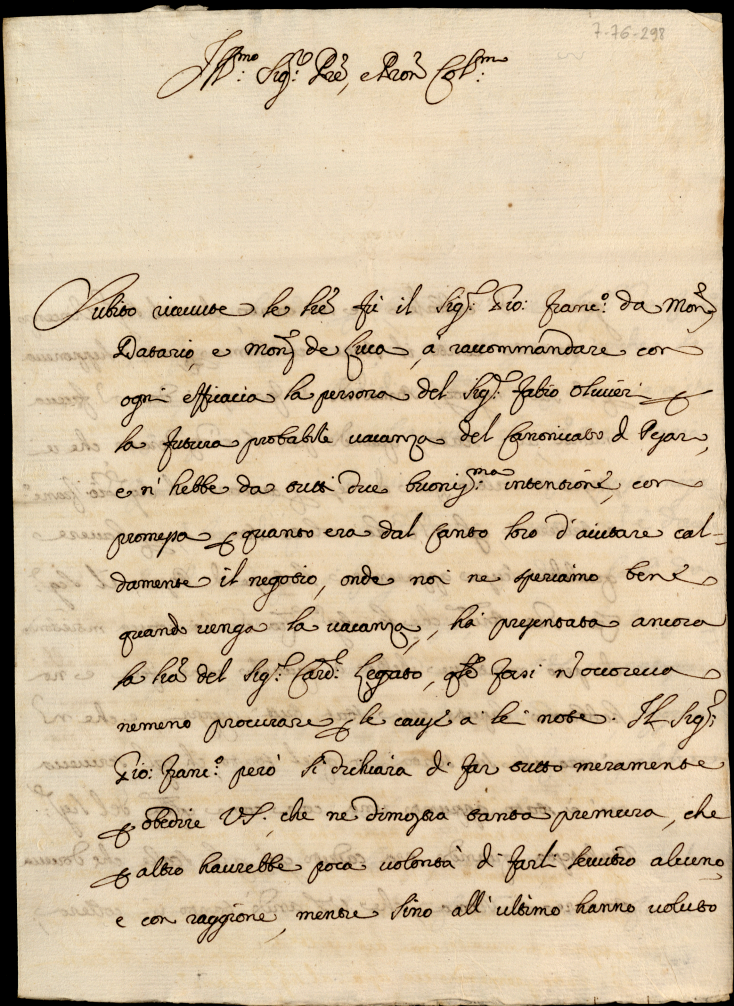 7-76-298
Ill.mo Sig.r P̃re, e P̃ron Col.mo
Subito ricevute le l̃re fù il Sig.r Gio: Franc.o da Mon.r
Datario, e Mon.r de Luca, à raccommandare con
ogni efficacia la persona del Sig.r Fabio Olivieri
la futura probabile vacanza del Canonicato di Pesaro,
e n' hebbe da tutti due buoniss.ma intentione, con
promessa quanto era dal canto loro d'aiutare cal-
damente il negotio, onde noi ne speriamo bene
quando venga la vacanza, hà presentata ancora
la l̃ra del Sig.r Card.l Legato, forsi n'occoreva
nemeno procurare le cause à lei note. Il Sig.r
Gio: Franc.o però si dichiara di far tutto meramente
obedire VS., che ne dimostra tanta premura, che
altro haverebbe poca volontà di farli servitio alcuno,
e con raggione, mentre sino all'ultimo hanno voluto